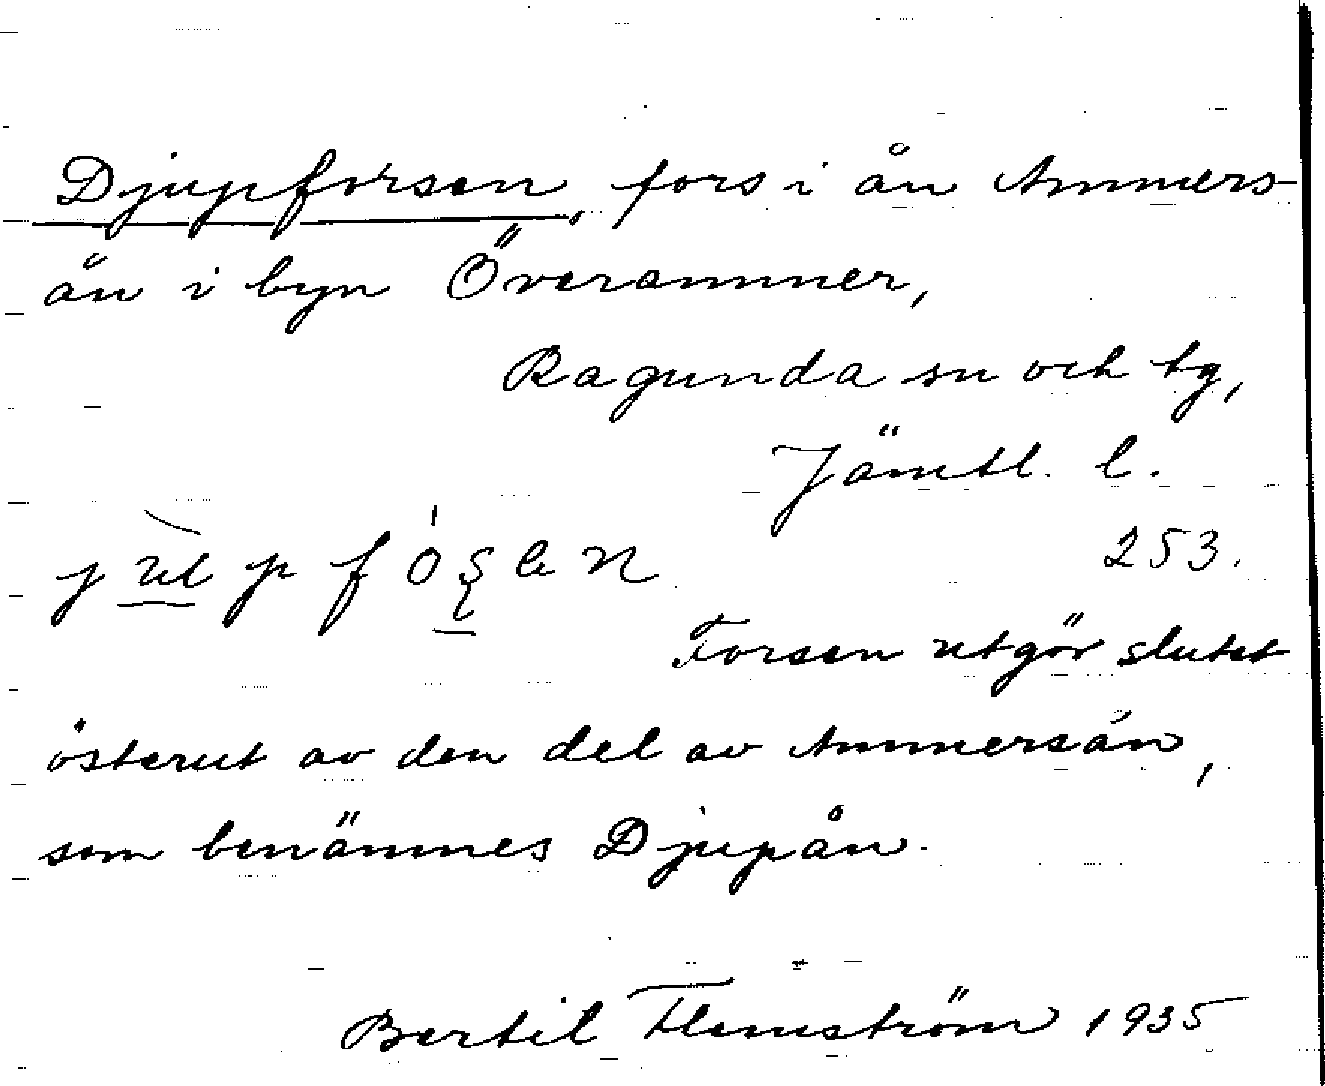 Djupforsen, fors i ån Ammers-
ån i byn Överammer,
Ragunda sn och tg,
Jämtl. l.
253.
Forsen utgör slutet
österut av den del av Ammersån,
som benämnes Djupån.
Bertil Flemström 1935